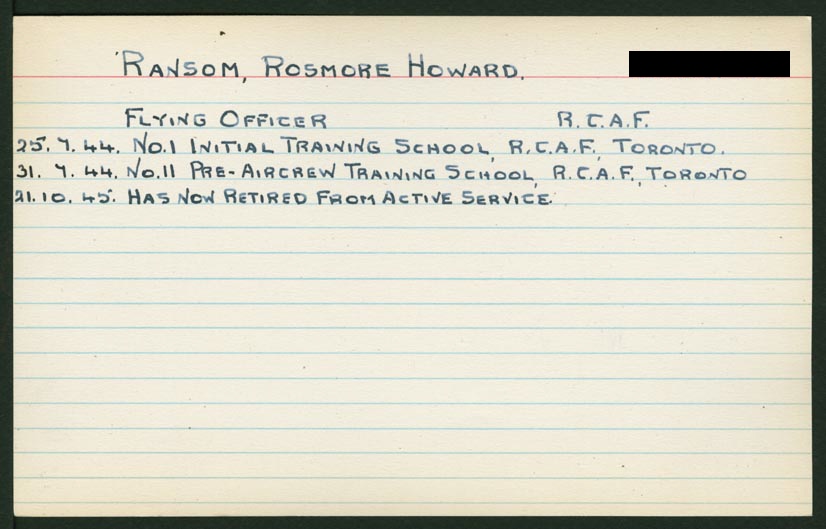 RANSOM, ROSMORE HOWARD.
FLYING OFFICER R.C.A.F.
25. 7. 44. NO.1 INITIAL TRAINING SCHOOL, R.C.A.F., TORONTO.
31. 7. 44. NO.11 PRE-AIRCREW TRAINING SCHOOL, R.C.A.F., TORONTO
21. 10. 45. HAS NOW RETIRED FROM ACTIVE SERVICE.